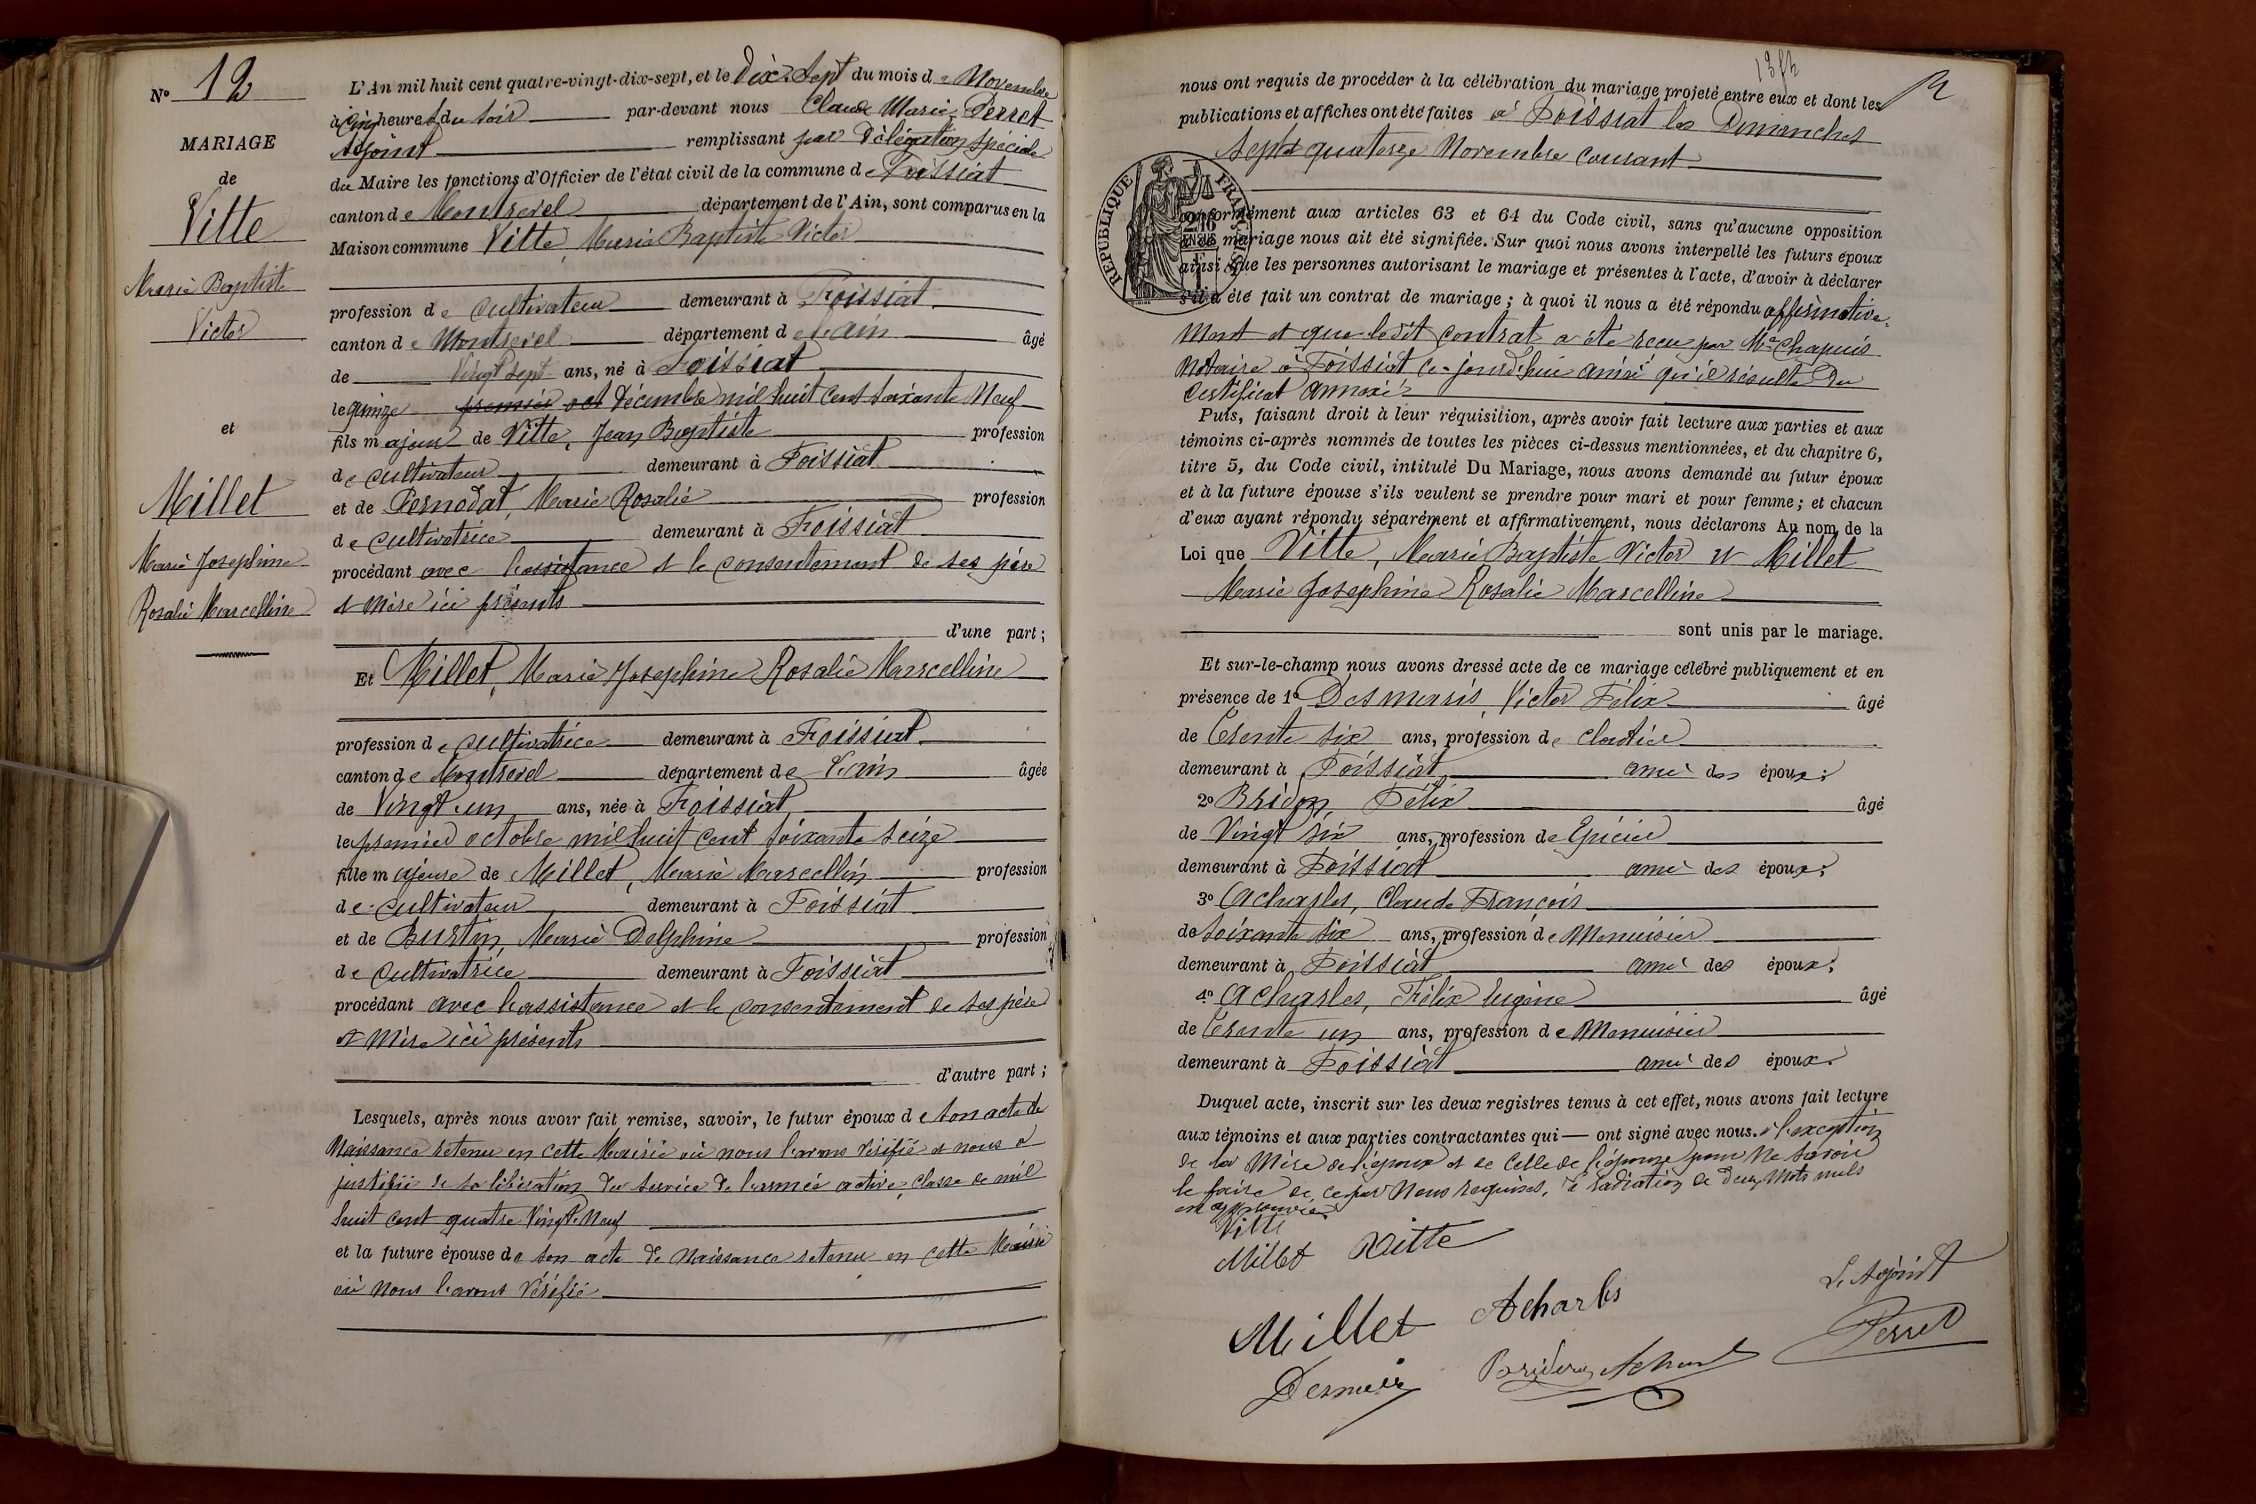 N° 12
MARIAGE
de
Vitte
Marie Baptiste
Victor
et
Millet
Marie Josephine
Rosalie Marcelline
L'An mil huit cent quatre-vingt-dix-sept, et le Dix-Sept du mois de Novembre
à Cinq heures du soir par-devant nous Claude Marie Perret
Adjoint remplissant par Délégation spéciale
du Maire les fonctions d'Officier de l'état civil de la commune de Foissiat
canton de Montrevel département de l'Ain, sont comparus en la
Maison commune Vitte, Marie Baptiste Victor
profession de cultivateur demeurant à Foissiat
canton de Montrevel département de l'ain âgé
de Vingt sept ans, né à Foissiat
le quinze premier oct Décembre mil huit cent soixante Neuf
fils majeur de Vitte, Jean Baptiste profession
de cultivateur demeurant à Foissiat
et de Pernodat, Marie Rosalie profession
de cultivatrice demeurant à Foissiat
procédant avec l'assistance et le consentement de ses père
et Mère ici présents
d'une part;
Et Millet, Marie Josephine Rosalie Marcelline
profession de cultivatrice demeurant à Foissiat
canton de Montrevel département de l'ain âgée
de Vingt-un ans, née à Foissiat
le premier octobre mil huit cent soixante seize
fille majeure de Millet, Marie Marcellin profession
de cultivateur demeurant à Foissiat
et de Burtin, Marie Delphine profession
de cultivatrice demeurant à Foissiat
procédant avec l'assistance et le consentement de ses père
et Mère ici présents
d'autre part;
Lesquels, après nous avoir fait remise, savoir, le futur époux de son acte de
Naissance retenu en cette Mairie où nous l'avons Vérifié et nous a
justifié de sa libération du service de l'armée active, classe de mil
huit cent quatre Vingt-Neuf
et la future épouse de son acte de Naissance retenu en cette Mairie
où Nous l'avons Vérifié
nous ont requis de procéder à la célébration du mariage projeté entre eux et dont les
publications et affiches ont été faites à Foissiat les Dimanches
Sept et quatorze Novembre courant
RÉPUBLIQUE FRANÇAISE
conformément aux articles 63 et 64 du Code civil, sans qu'aucune opposition
mariage nous ait été signifiée. Sur quoi nous avons interpellé les futurs époux
ainsi que les personnes autorisant le mariage et présentes à l'acte, d'avoir à déclarer
s'il a été fait un contrat de mariage; à quoi il nous a été répondu affirmative-
ment et que ledit contrat a été reçu par Me Chapuis
Notaire à Foissiat ce-jourd'hui ainsi qu'il résulte du
Certificat annexé
Puis, faisant droit à leur réquisition, après avoir fait lecture aux parties et aux
témoins ci-après nommés de toutes les pièces ci-dessus mentionnées, et du chapitre 6,
titre 5, du Code civil, intitulé Du Mariage, nous avons demandé au futur époux
et à la future épouse s'ils veulent se prendre pour mari et pour femme; et chacun
d'eux ayant répondu séparément et affirmativement, nous déclarons Au nom de la
Loi que Vitte, Marie Baptiste Victor et Millet
Marie Josephine Rosalie Marcelline
sont unis par le mariage.
Et sur-le-champ nous avons dressé acte de ce mariage célébré publiquement et en
présence de 1° Desmaris, Victor Félix âgé
de Trente six ans, profession de
demeurant à Foissiat ami des époux;
2° Bridon, Félix âgé
de Vingt six ans, profession de Epicier
demeurant à Foissiat ami des époux;
3° Acharles, Claude François
de soixante six ans, profession de Menuisier
demeurant à Foissiat ami des époux;
4° Acharles, Félix Eugène âgé
de Trente un ans, profession de Menuisier
demeurant à Foissiat ami des époux.
Duquel acte, inscrit sur les deux registres tenus à cet effet, nous avons fait lecture
aux témoins et aux parties contractantes qui — ont signé avec nous. à l'exception
de la Mère de l'époux et de Celle de l'épouse pour Ne savoir
le faire de ce par Nous requises, la radiation de deux Mots nuls
est approuvée.
Vitte
Millet Vitte
Millet Acharles
Le Adjoint
Perret